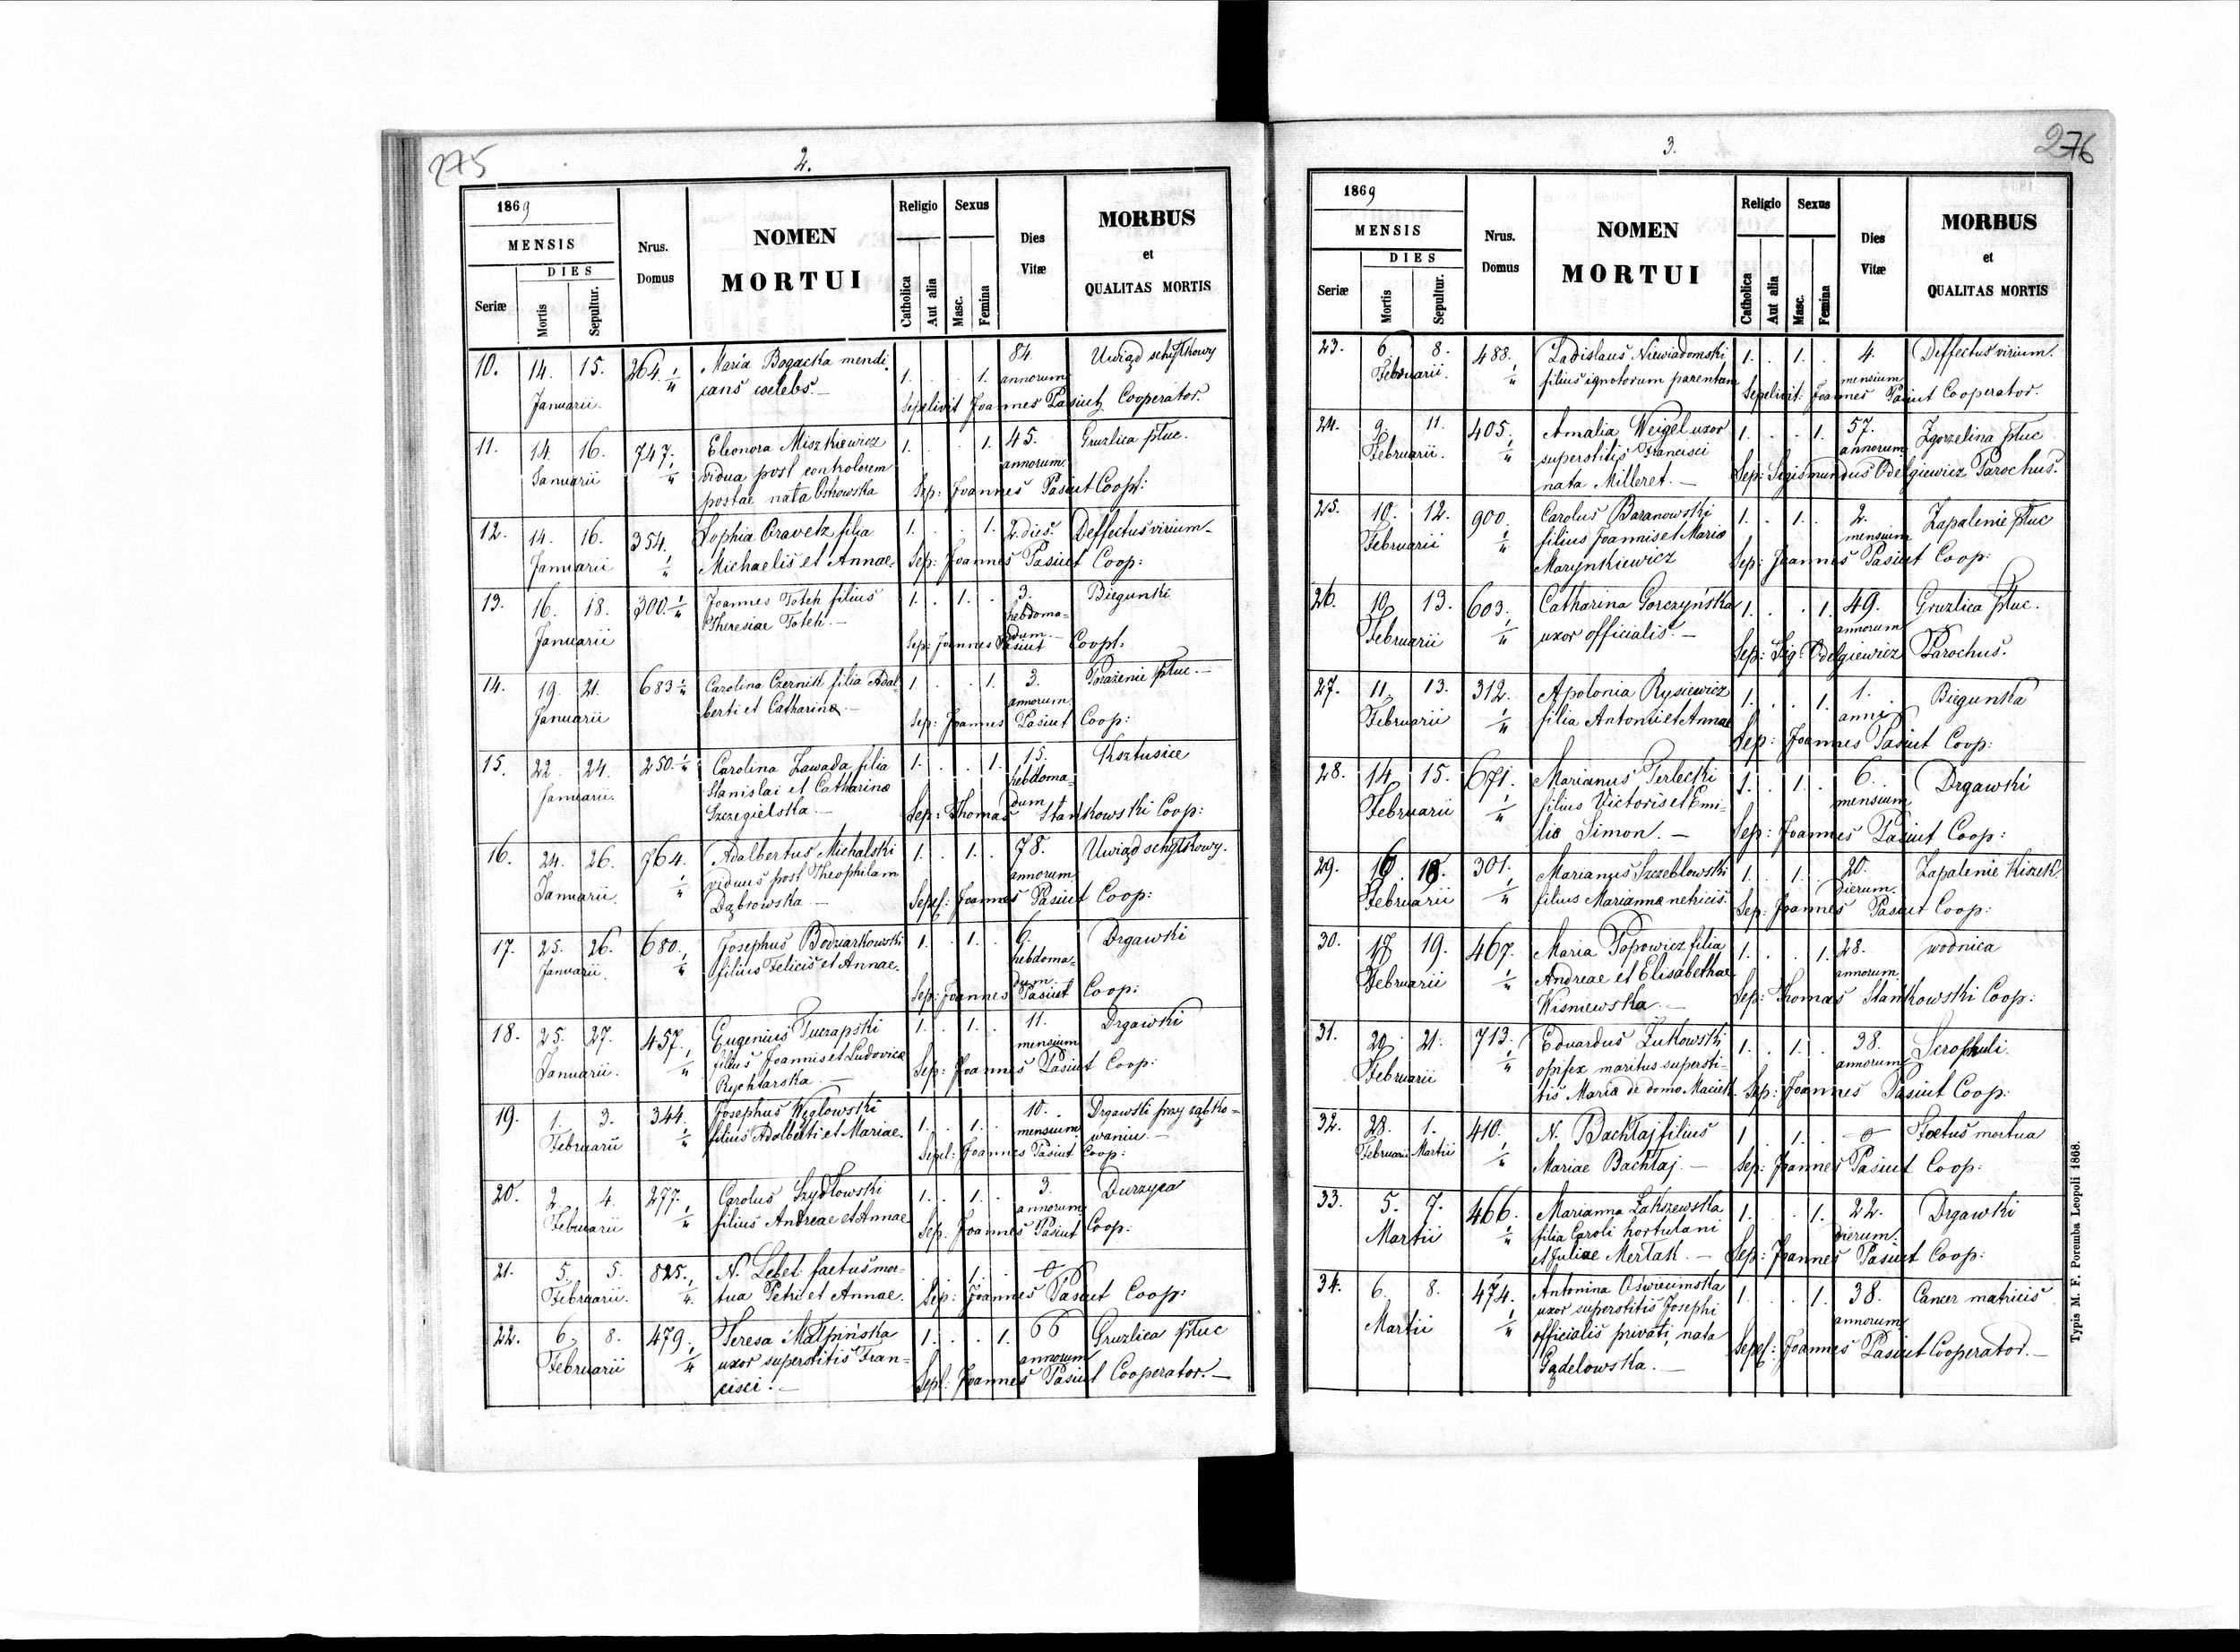 275
2.
1869
MENSIS
DIES
Seriæ
Mortis
Sepultur.
Nrus.
Domus
NOMEN
MORTUI
Religio
Catholica
Aut alia
Sexus
Masc.
Femina
Dies
Vitæ
MORBUS
et
QUALITAS MORTIS
10. 14. 15. 264. Maria Bogacka mendi- 1. . . 1. 84. Uwiąd schyłkowy
Januarii. cans coelebs. — annorum
Sepelivit Joannes Pasiut Cooperator.
11. 14. 16. 747. Eleonora Miszkiewicz 1. . . 1. 45. Gruzlica płuc.
Januarii vidua post controlorem annorum
postae nata Ostrowska Sep: Joannes Pasiut Coop:
12. 14. 16. 354. Sophia Cravetz filia 1. . . 1. 2. dies. Deffectus virium —
Januarii Michaelis et Annae. Sep: Joannes Pasiut Coop:
13. 16. 18. 300. Joannes Toteh filius 1. . 1. . 3. Biegunki
Januarii Theresiae Toteh. — hebdoma-
dum. —
Sep: Joannes Pasiut Coop.
14. 19. 21. 683 Carolina Czernik filia Adal- 1. . . 1. 3. Porażenie płuc. —
Januarii berti et Catharina. — annorum
Sep: Joannes Pasiut Coop:
15. 22. 24. 250. Carolina Zawada filia 1. . . 1. 15. Ksztusice
Januarii. Stanislai et Catharina hebdoma-
Szczegielska — dum
Sep: Thomas Stankowski Coop:
16. 24. 26. 764. Adalbertus Michalski 1. . 1. . 78. Uwiąd schyłkowy.
Januarii. viduus post Theophilam annorum
Dąbrowska — Sepel: Joannes Pasiut Coop:
17. 25. 26. 680. Josephus Bodziarkowski 1. . 1. . 9. Drgawki
Januarii. filius Felicis et Annae. hebdoma-
dum
Sep: Joannes Pasiut Coop:
18. 25. 27. 457. Eugenius Tuczapski 1. . 1. . 11. Drgawki
Januarii. filius Joannis et Ludovica mensium
Rychtarska — Sep: Joannes Pasiut Coop:
19. 1. 3. 344. Josephus Węglowski 1. . 1. . 10. Drgawki przy ząbko-
Februarii filius Adalberti et Mariae. mensium waniu. —
Sepel: Joannes Pasiut Coop:
20. 2. 4. 277. Carolus Szydłowski 1. . 1. . 3. Durzyca
Februarii filius Andreae et Annae annorum
Sep. Joannes Pasiut Coop:
21. 5. 5. 825. N. Lebet faetus mor- . . 1. .
Februarii. tua Petri et Annae. Sep: Joannes Pasiut Coop:
22. 6. 8. 479. Teresa Małpińska 1. . . 1. 66 Gruzlica płuc
Februarii uxor superstitis Fran- annorum
cisci. — Sepl: Joannes Pasiut Cooperator. —
276
3.
1869
MENSIS
DIES
Seriæ
Mortis
Sepultur.
Nrus.
Domus
NOMEN
MORTUI
Religio
Catholica
Aut alia
Sexus
Masc.
Femina
Dies
Vitæ
MORBUS
et
QUALITAS MORTIS
23. 6. 8. 488. Ladislaus Niewiadomski 1. . 1. . 4. Deffectus virium.
Februarii. filius ignotorum parentum mensium
Sepelivit: Joannes Pasiut Cooperator.
24. 9. 11. 405. Amalia Weigel uxor 1. . . 1. 57. Zgorzelina płuc
Februarii. superstitis Francisci annorum
nata Milleret. — Sep: Sigismundus Odelgiewicz Parochus.
25. 10. 12. 900. Carolus Baranowski 1. . 1. . 2. Zapalenie płuc
Februarii filius Joannis et Maria mensium
Marynkiewicz Sep: Joannes Pasiut Coop:
26. 10. 13. 603. Catharina Gorczyńska 1. . . 1. 49. Gruzlica płuc.
Februarii uxor officialis. — annorum
Sep: Sig: Odelgiewicz Parochus.
27. 11. 13. 312. Apolonia Rysiewicz 1. . . 1. 1. Biegunka
Februarii filia Antonii et Annae anni
Sep: Joannes Pasiut Coop:
28. 14. 15. 671. Marianus Terlecki 1. . 1. . 6. Drgawki
Februarii filius Victoris et Emi- mensium
lia Simon. — Sep: Joannes Pasiut Coop:
29. 16. 18. 301. Marianus Szczeblowski 1. . 1. . 20. Zapalenie kiszek.
Februarii filius Marianna netricis. dierum.
Sep: Joannes Pasiut Coop:
30. 17. 19. 467. Maria Popowicz filia 1. . . 1. 28. wodnica
Februarii Andreae et Elisabethae annorum
Wisniewska. — Sep: Thomas Stankowski Coop:
31. 20. 21. 713. Eduardus Żukowski 1. . 1. . 38. Scrophuli.
Februarii opifex maritus supersti- annorum
tis Maria de domo Maciek. Sep: Joannes Pasiut Coop:
32. 28. 1. 410. N. Bachtaj filius 1 . 1. . Foetus mortua
Februarii Martii Mariae Bachtaj. — Sep: Joannes Pasiut Coop:
33. 5. 7. 466. Marianna Zakszewska 1. . . 1. 22. Drgawki
Martii filia Caroli hortulani dierum.
et Juliae Mertak. — Sep: Joannes Pasiut Coop:
34. 6. 8. 474. Antonina Oświecimska 1. . . 1. 38. Cancer matricis
Martii uxor superstitis Josephi annorum
officialis privati, nata
Gądelowska. — Sepel: Joannes Pasiut Cooperator. —
Typis M. F. Poremba Leopoli 1868.